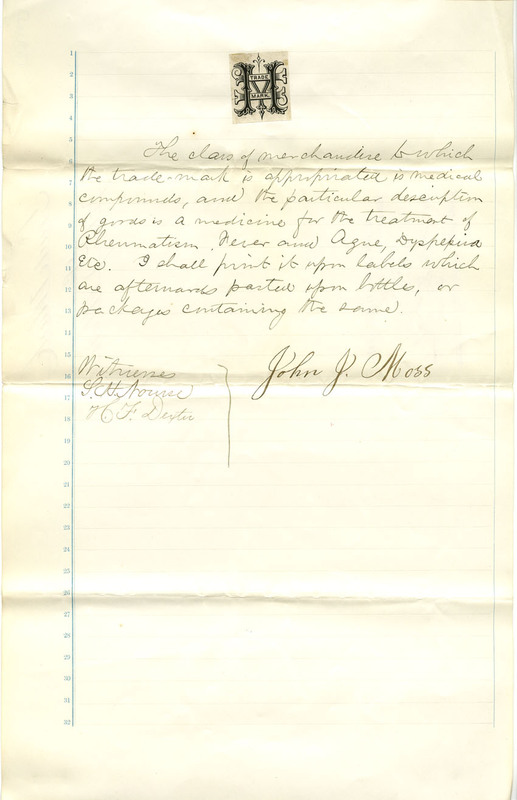 TRADE
MARK
1
2
3
4
5
6
7
8
9
10
11
12
13
14
15
16
17
18
19
20
21
22
23
24
25
26
27
28
29
30
31
32
The class of merchandise to which
the trade-mark is appropriated is medical
compounds, and the particular description
of goods is a medicine for the treatment of
Rheumatism. Fever and Ague, Dyspepsia
Etc. I shall print it upon labels which
are afterwards pasted upon bottles, or
packages containing the same.
Witnesses
John J. Moss
S. H. Nourse
H. F. Dexter